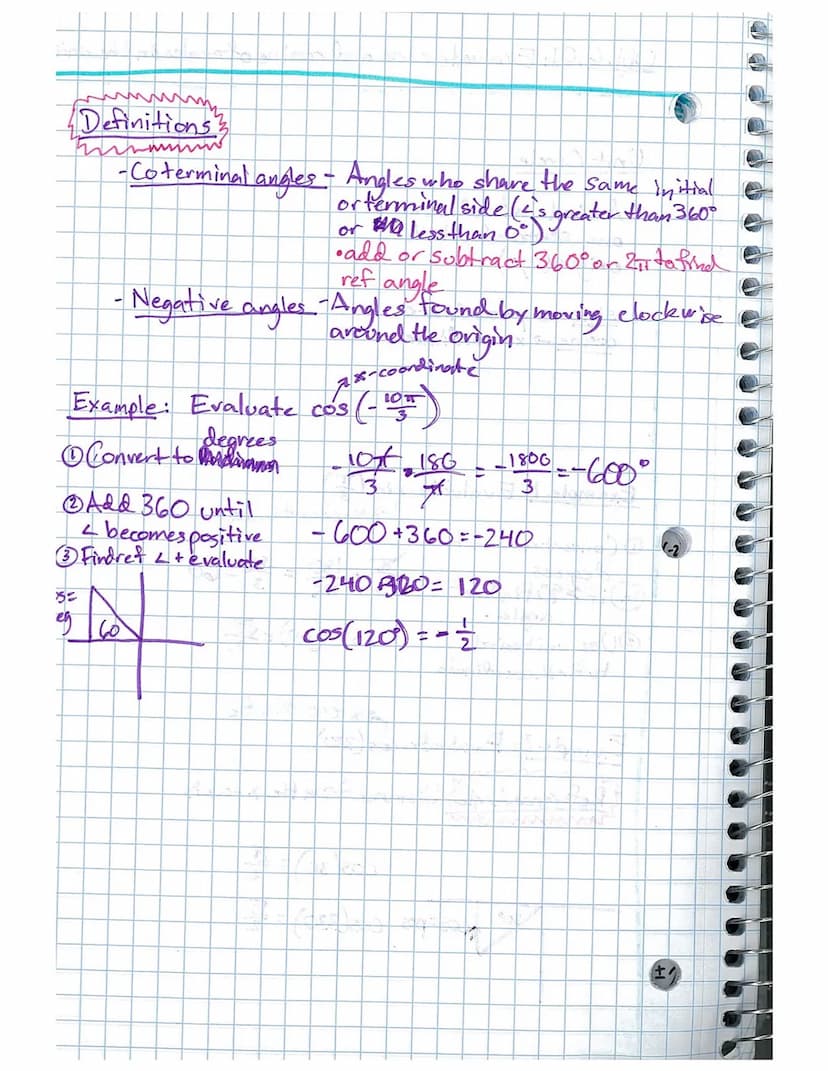 Definitions
- Coterminal angles - Angles who share the same initial
or terminal side (∠'s greater than 360°
or less than 0°)
• add or subtract 360° or 2π to find
ref angle
- Negative angles - Angles found by moving clockwise
around the origin
↗ x-coordinate
Example: Evaluate cos (-10π/3)
① Convert to degrees
-10π/3 · 180/π = -1800/3 = -600°
② Add 360 until
∠ becomes positive
-600 + 360 = -240
③ Find ref ∠ + evaluate
-240 = 120
60
cos(120°) = -1/2